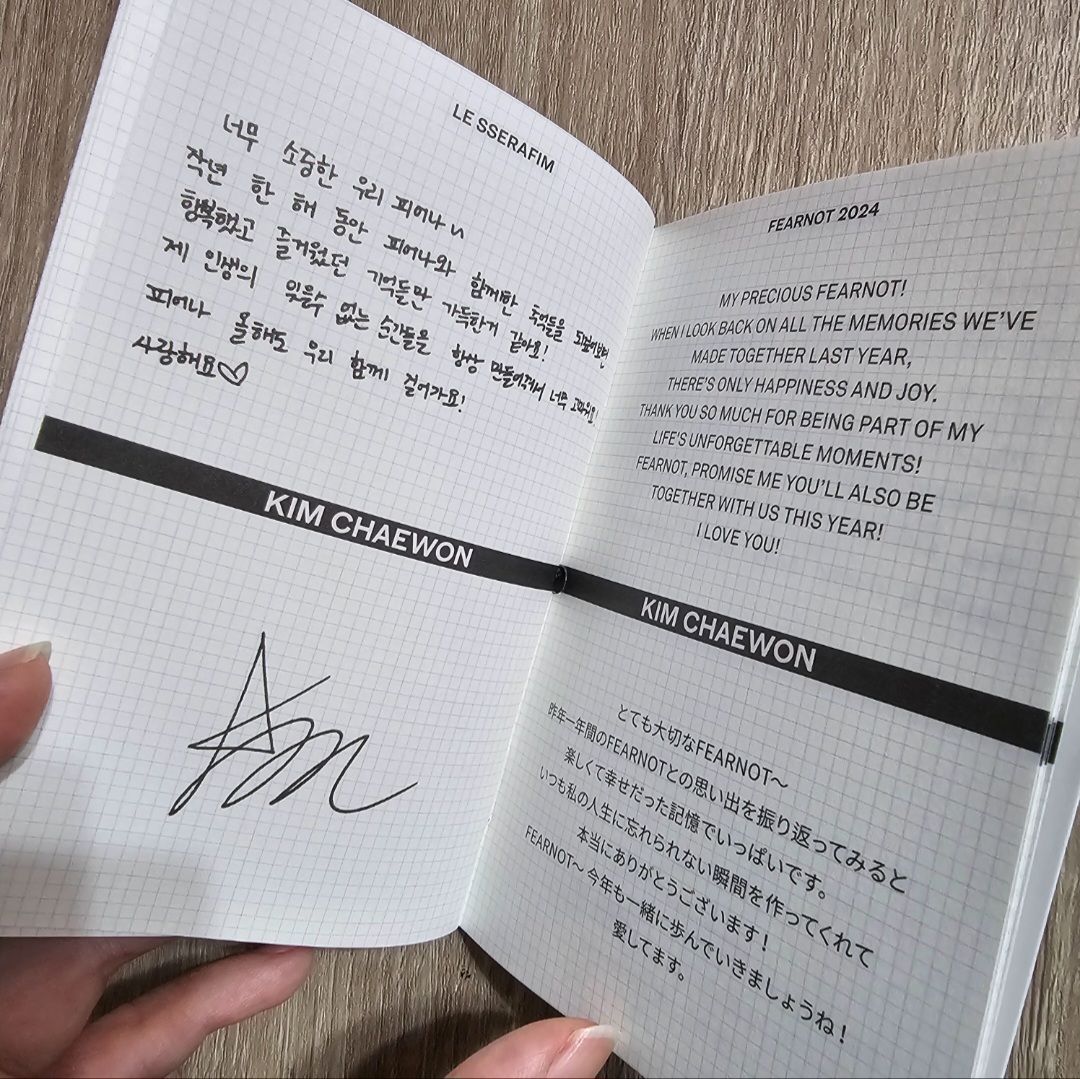 LE SSERAFIM
너무 소중한 우리 피어나
작년 한 해 동안 피어나와 함께한 추억들을 되돌아보면
행복했고 즐거웠던 기억들만 가득한거 같아요!
제 인생의 잊을수 없는 순간들을 항상 만들어줘서 너무 고마워요!
피어나 올해도 우리 함께 걸어가요!
사랑해요♡
KIM CHAEWON
FEARNOT 2024
MY PRECIOUS FEARNOT!
WHEN I LOOK BACK ON ALL THE MEMORIES WE'VE
MADE TOGETHER LAST YEAR,
THERE'S ONLY HAPPINESS AND JOY.
THANK YOU SO MUCH FOR BEING PART OF MY
LIFE'S UNFORGETTABLE MOMENTS!
FEARNOT, PROMISE ME YOU'LL ALSO BE
TOGETHER WITH US THIS YEAR!
I LOVE YOU!
KIM CHAEWON
とても大切なFEARNOT～
昨年一年間のFEARNOTとの思い出を振り返ってみると
楽しくて幸せだった記憶でいっぱいです。
いつも私の人生に忘れられない瞬間を作ってくれて
本当にありがとうございます！
FEARNOT～ 今年も一緒に歩んでいきましょうね！
愛してます。